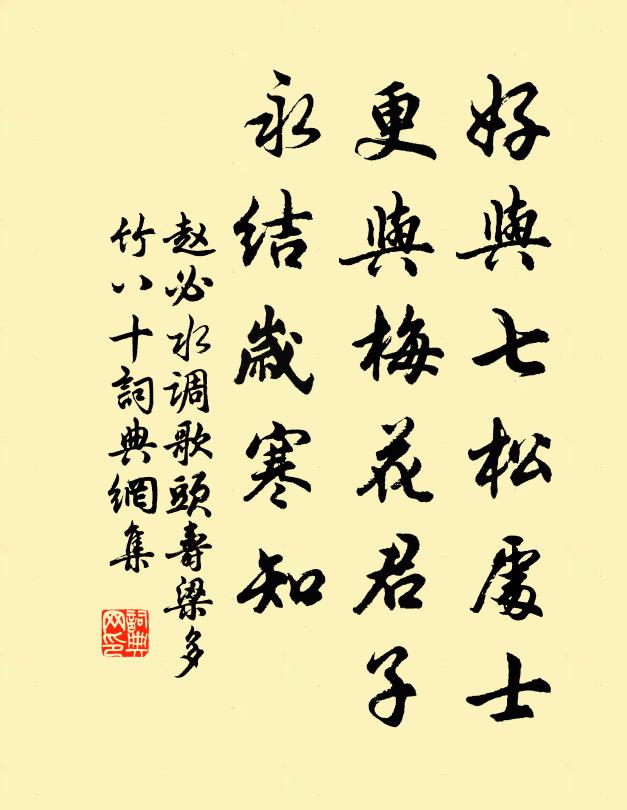 好與七松處士
更與梅花君子
永結歲寒知
赵必水调歌頭壽梁多
竹八十詞典網集
詞典
网印